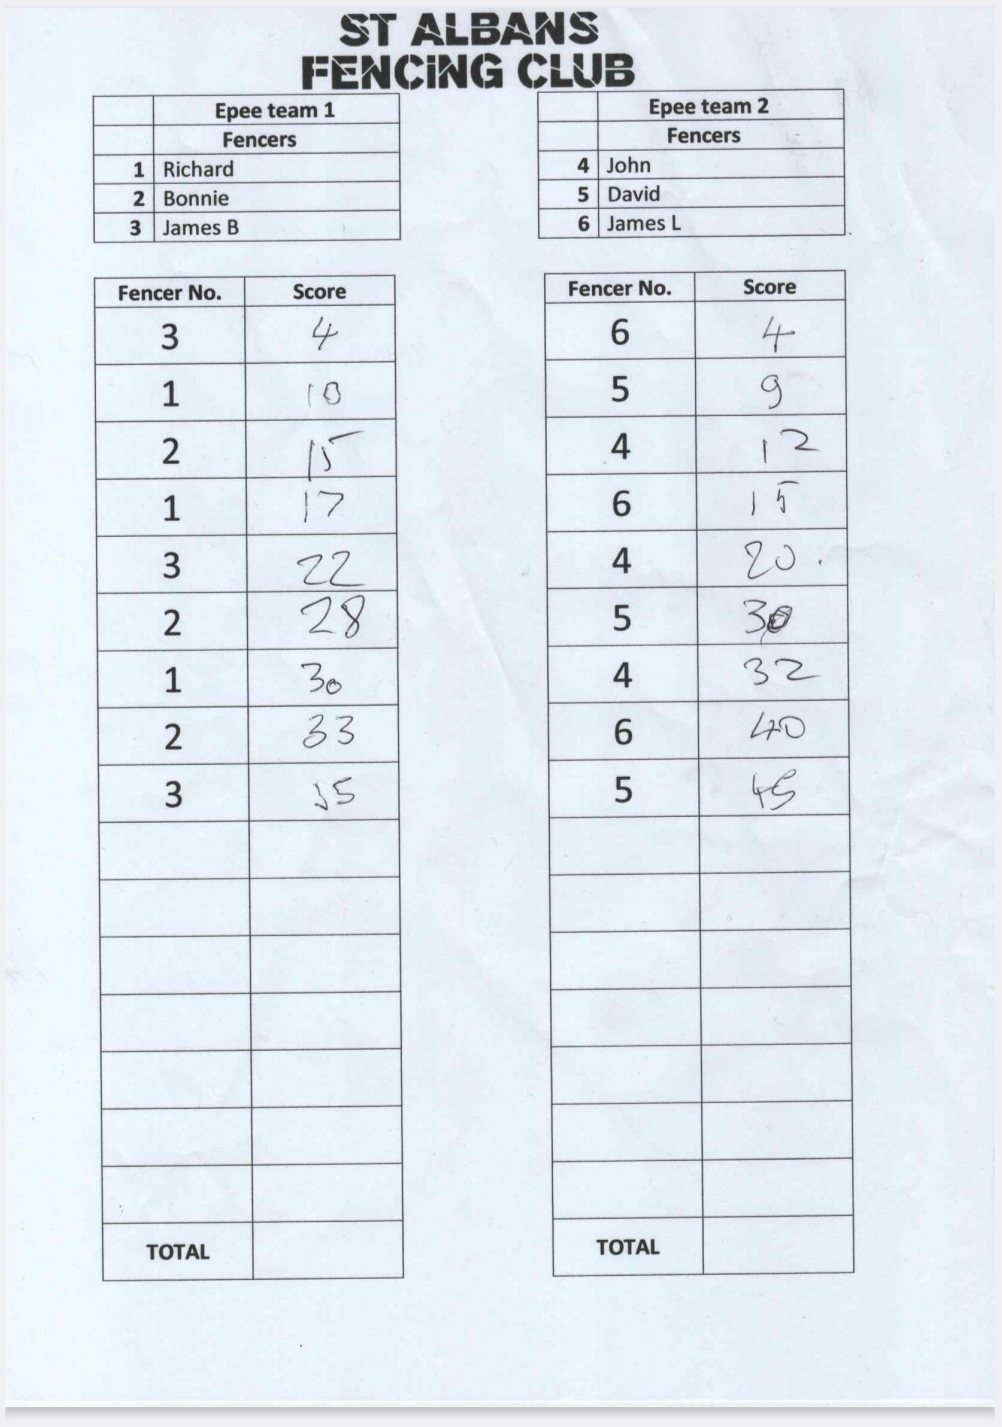 ST ALBANS
FENCING CLUB
Epee team 1
Fencers
1 Richard
2 Bonnie
3 James B
Epee team 2
Fencers
4 John
5 David
6 James L
Fencer No. Score
3 4
1 10
2 15
1 17
3 22
2 28
1 30
2 33
3 35
TOTAL
Fencer No. Score
6 4
5 9
4 12
6 15
4 20
5 30
4 32
6 40
5 45
TOTAL